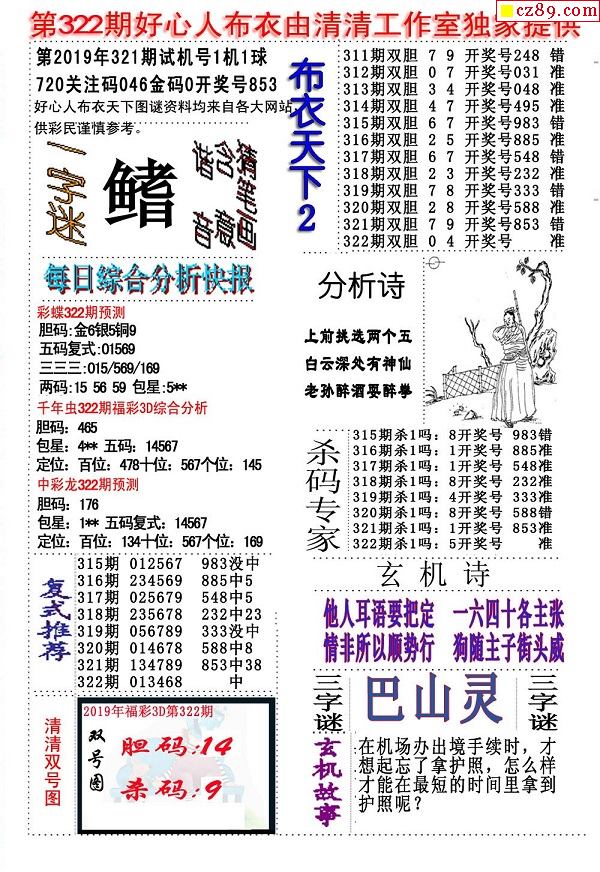 cz89.com
第322期好心人布衣由清清工作室独家提供
第2019年321期试机号1机1球
720关注码046金码0开奖号853
好心人布衣天下图谜资料均来自各大网站,
供彩民谨慎参考。
一字迷
鳍
谐音
含意
猜笔画
布衣天下2
311期双胆 7 9 开奖号248 错
312期双胆 0 7 开奖号031 准
313期双胆 3 4 开奖号048 准
314期双胆 4 7 开奖号495 准
315期双胆 6 7 开奖号983 错
316期双胆 2 5 开奖号885 准
317期双胆 6 7 开奖号548 错
318期双胆 2 3 开奖号232 准
319期双胆 7 8 开奖号333 错
320期双胆 2 8 开奖号588 准
321期双胆 7 9 开奖号853 错
322期双胆 0 4 开奖号 准
每日综合分析快报
彩蝶322期预测
胆码:金6银5铜9
五码复式:01569
三三三:015/569/169
两码:15 56 59 包星:5**
千年虫322期福彩3D综合分析
胆码: 465
包星: 4** 五码: 14567
定位: 百位: 478十位: 567个位: 145
中彩龙322期预测
胆码: 176
包星: 1** 五码复式: 14567
定位: 百位: 134十位: 567个位: 169
分析诗
上前挑选两个五
白云深处有神仙
老孙醉酒耍醉拳
杀码专家
315期杀1吗: 8开奖号 983错
316期杀1吗: 1开奖号 885准
317期杀1吗: 1开奖号 548准
318期杀1吗: 8开奖号 232准
319期杀1吗: 4开奖号 333准
320期杀1吗: 8开奖号 588错
321期杀1吗: 1开奖号 853准
322期杀1吗: 5开奖号 准
复式推荐
315期 012567 983没中
316期 234569 885中5
317期 025679 548中5
318期 235678 232中23
319期 056789 333没中
320期 014678 588中8
321期 134789 853中38
322期 013468 中
玄机诗
他人耳语要把定 一六四十各主张
情非所以顺势行 狗随主子街头威
三字谜
巴山灵
三字谜
清清双号图
2019年福彩3D第322期
双号图
胆码:14
杀码:9
玄机故事
在机场办出境手续时，才
想起忘了拿护照，怎么样
才能在最短的时间里拿到
护照呢？